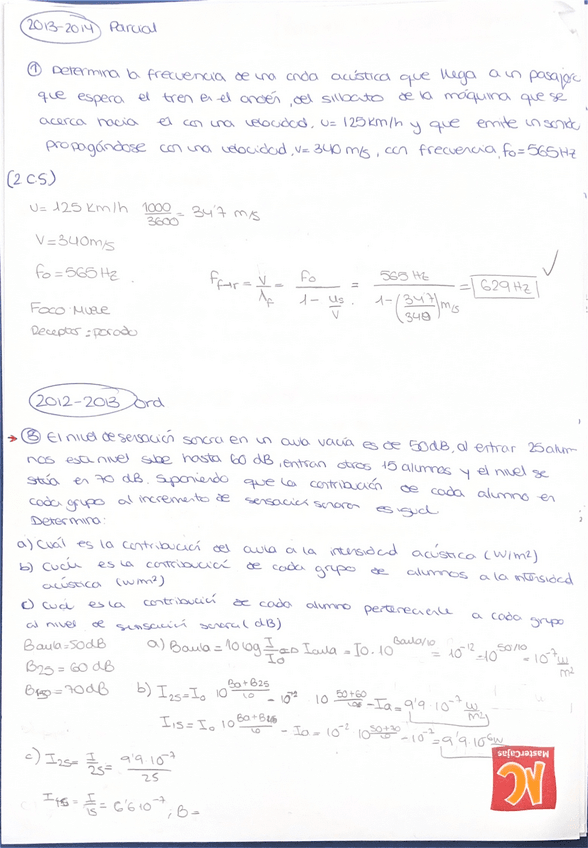 2013-2014 Parcial
① Determina la frecuencia de una onda acústica que llega a un pasajero
que espera el tren en el andén, del silbato de la máquina que se
acerca hacia él con una velocidad, u=125km/h y que emite un sonido
propagándose con una velocidad, v=340 m/s, con frecuencia, fo=565Hz
(2 CS)
u=125 Km/h 1000/3600 = 34'7 m/s
V=340m/s
fo=565Hz.
Foco: Mueve
Receptor: parado
F = V/λF = Fo/(1 - us/V) = 565 Hz/(1-(34'7/340)m/s) = 629 Hz ✓
2012-2013 Ord
→ ③ El nivel de sensación sonora en un aula vacía es de 50dB, al entrar 25 alum-
nos esa nivel sube hasta 60 dB, entran otros 15 alumnos y el nivel se
sitúa en 70 dB. Suponiendo que la contribución de cada alumno en
cada grupo al incremento de sensación sonora es igual
Determina:
a) Cuál es la contribución del aula a la intensidad acústica (W/m²)
b) Cuál es la contribución de cada grupo de alumnos a la intensidad
acústica (W/m²)
c) cual es la contribución de cada alumno perteneciente a cada grupo
al nivel de sensación sonora (dB)
Baula=50dB a) Baula = 10 log I/Io => Iaula = Io · 10^(Baula/10) = 10^-12 = 10^(50/10) = 10^-7 W/m²
B25 = 60 dB
=70dB b) I25 = Io 10 - 10 - Ia = 9'9·10^-7 W/m²
I15 = Io 10 - Ia = = 9'9·10^-6
c) I25 = I/25 = 9'9·10^-7/25
I15 = I/15 = 6'6 10^-7 ; B =
MasterCajas